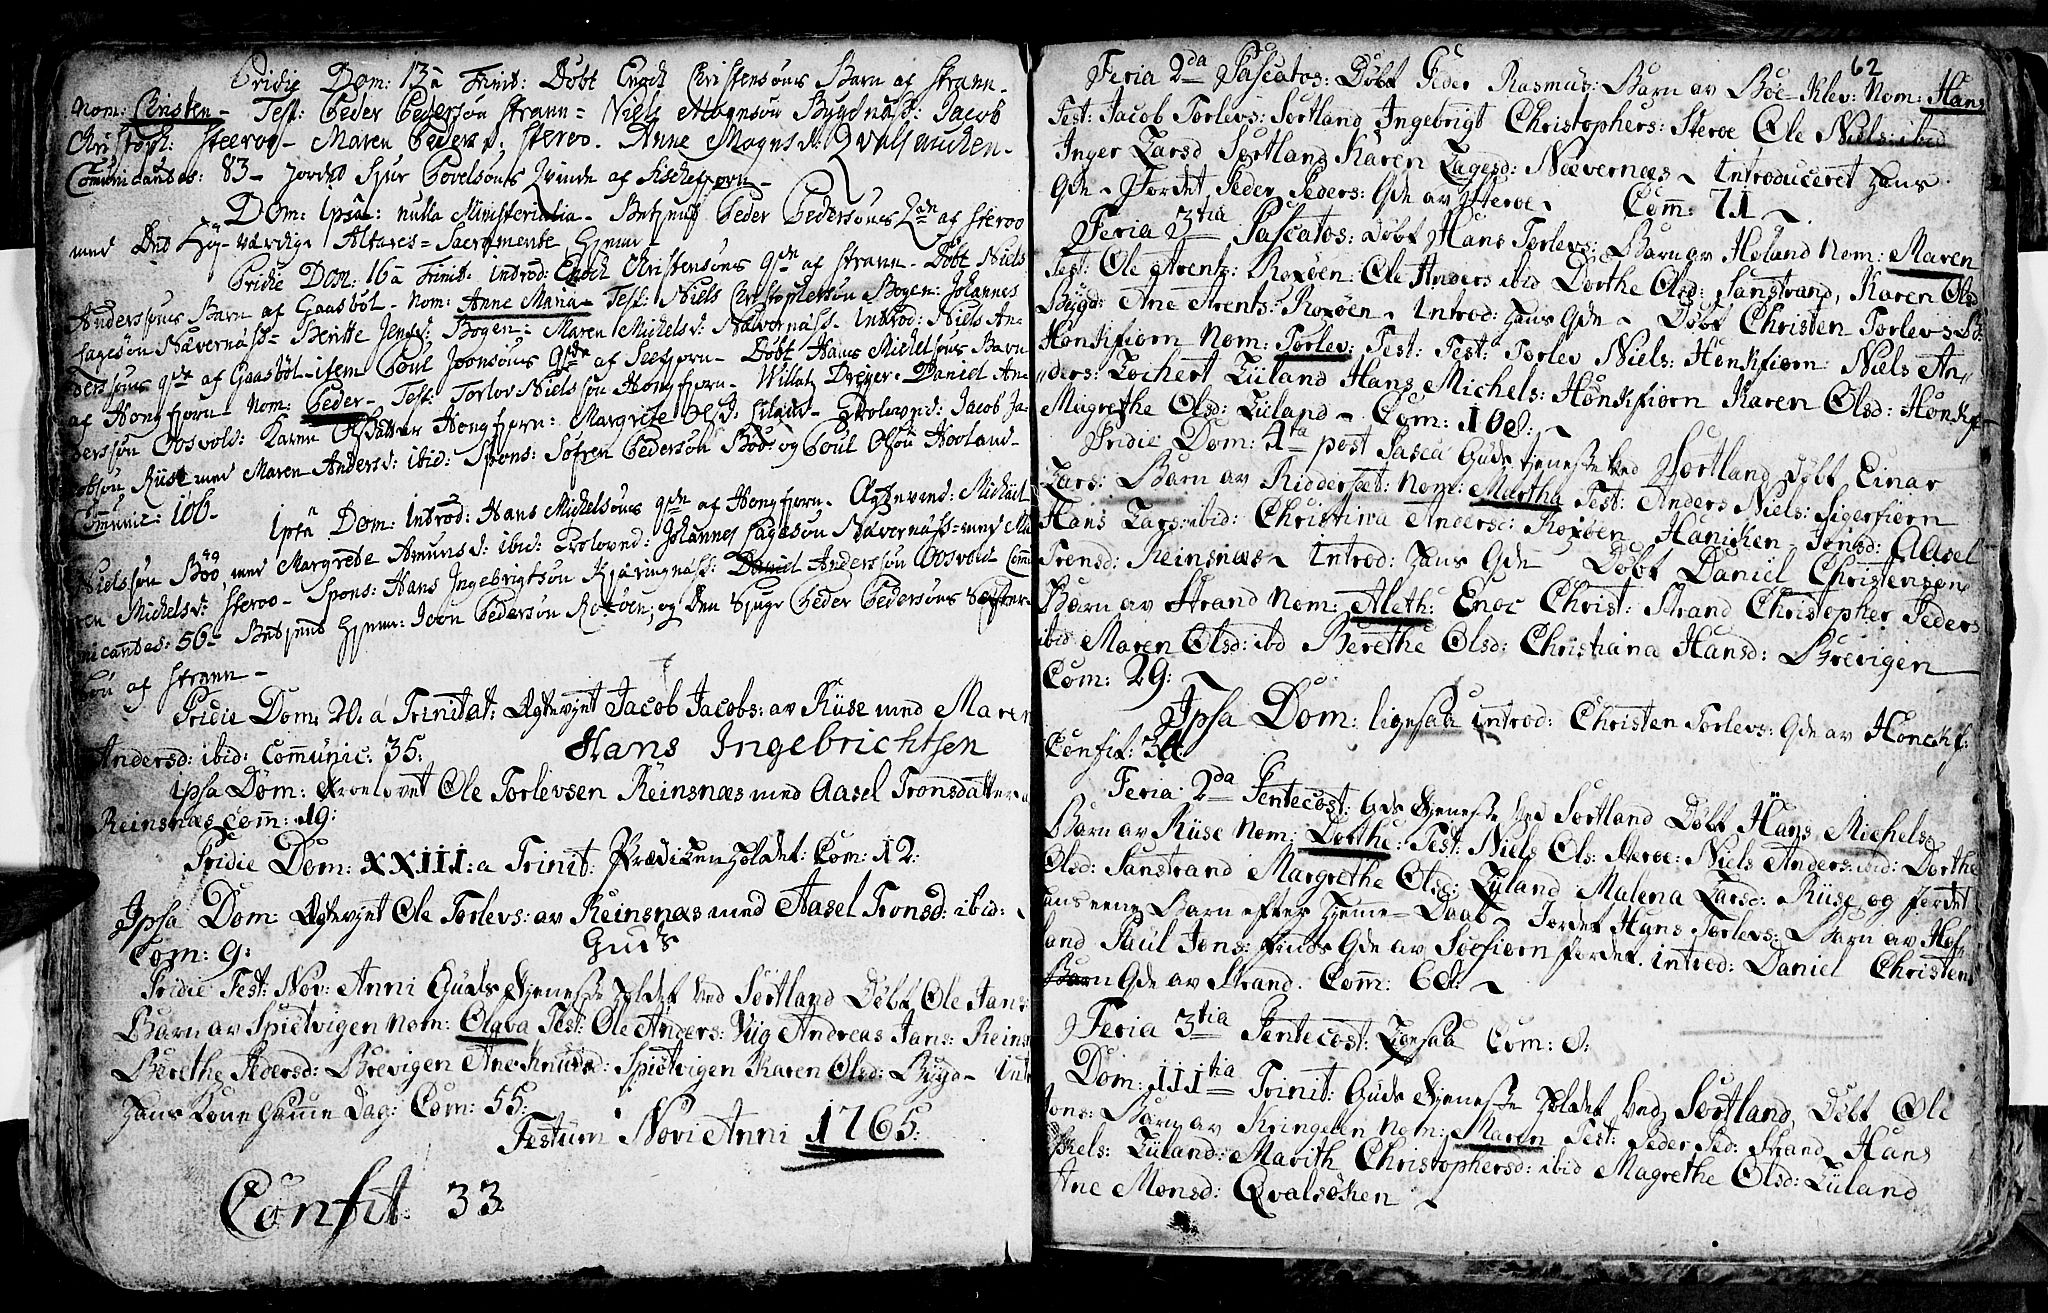 Pridie Dom: 13 a Trinit: Døbt Enoch Christensøns Barn af Strann.
Nom: Christen - Test: Peder Pedersøn Strann - Niels Mognsøn Bygdnæss: Jacob
Christoph: Steeroe - Maren Peders: Steroe. Anne Mognsd: Qvalsauchen.
Communicantes: 83 - Jorded Siur Povelsøns Qvinde af Fischefjorn -
Dom: Ipsa: nulla Ministerialia - Betjent Peder Pedersøns Qde af Steroe
med Det Høj-værdige Altares-Sacramente hjemme -
Pridie Dom: 16 a Trinit: introd: Enoch Christensøns Qde af Strann - Døbt Niels
Anderssøns Barn af Gaasbøl - Nom: Anne Maria - Test: Niels Christophersøn Bogen: Johannes
Fagesøn Nævernæss - Beritte Jensd: Bogen: - Maren Michelsd: Nævernæss - Introd: Niels An-
dersøns Qde af Gaasbøl - item Poul Joensøns Qde af Seefjorn - Døbt Hans Michelsøns Barn
af Hongfjorn - Nom: Peder - Test: Torlov Nielssøn Hongfjorn - Willatz Dreyer - Daniel An-
derssøn Oosvold: Karen Olsdatter Hongfjorn: Margrete Olsd: Liland - Trolovned: Jacob Ja-
cobsøn Riise med Maren Andersd: ibid: Spons: Søfren Pedersøn Böö og Poul Olsøn Hooland -
Comunic: 106 -
Ipsa Dom: Introd: Hans Michelsøns Qde af Hongfjorn - Ægtevied: Michael
Nielssøn Böö med Margrete Amunsd: ibid: Trolovned: Johannes Fagesøn Nævernæss - med Ma-
ren Michelsd: Steroe - Spons: Hans Ingebrigtsøn Kjæringnæss: Daniel Anderssøn Oosvold Com-
unicantes: 56 - Betjent hjemme: Joen Pedersøn Roxøen; og den Siuge Peder Pedersøns
søn af Strann -
Pridie Dom: 20: a Trinitat: Ægteviet Jacob Jacobs: av Riise med Maren
Andersd: ibid: Communic: 35: Hans Ingebrichtsen
ipsa Dom: Troelovet Ole Torlevsen Reinsnæs med Aasel Tronsdatter
Reinsnæs Com: 19:
Pridie Dom: XXIII: a Trinit: Prædiken holdet: Com: 12:
Ipsa Dom: Ægteviet Ole Torlevs: av Reinsnæs med Aasel Tronsd: ibid:
Com: 9: Guds
Pridie Fest: Nov: Anni Guds Tjeneste holdet ved Sortland Døbt Ole Jans:
Barn av Spietvigen Nom: Olava Test: Ole Anders: Viig Andreas Jans: Reins
Berethe Pedersd: Brevigen Ane Knudsd: Spietvigen Karen Olsd: Bygd - Int:
hans Kone samme Dag: Com: 55:
Festum Novi Anni 1765:
Confit: 33
62
Feria 2da Pascatos: Døbt Peder Rasmus: Barn av Böe Klev: Nom: Hans
Test: Jacob Torlevs: Sortland Ingebrigt Christophers: Steroe Ole Niels: ibid
Inger Larsd Sortland Karen Fagesd: Nævernæs - Introduceret hans
Qde - Jordet Peder Peders: Qde av Steroe - Com: 71 -
Feria 3tia Pascatos: Døbt Hans Torlevs: Barn av Høland Nom: Maren
Test: Ole Arentz: Roxøen: Ole Anders ibid Dorthe Olsd: Sanstrand, Karen Olsd
Bygd: Ane Arents: Roxøen - Introd: hans Qde - Døbt Christen Torlevs: B:
Honkfiorn Nom: Torlev: Test: Test: Torlev Niels: Honkfiorn Niels An-
ders: Lochert Lüland Hans Michels: Honkfiorn Karen Olsd: Honkf-
Magrethe Olsd: Lüland - Com: 108: -
Pridie Dom: 4ta post Pasca Guds tjeneste ved Sortland Døbt Einar
Lars: Barn av Riddersæt: Nom: Martha Test: Anders Niels: Sigerfiorn
Hans Lars: ibid: Christina Andersd: Roxøen Haniken Jonsd: Aasel
Tronsd: Reinsnæs - Introd: hans Qde Døbt Daniel Christensens
Barn av Strand Nom: Aleth: Enoc Christ: Strand Christopher Peders
ibid: Maren Olsd: ibd Berethe Olsd: Christiana Hansd: Brevigen
Com: 29: -
Ipsa Dom: ligesaa introd: Christen Torlevs: Qde av Honckf:
Confit: 30:
Feria 2da Pentecost: Gds tjeneste ved Sortland Døbt Hans Michels:
Barn av Riise Nom: Dorthe: Test: Niels Ols: Steroe: Niels Anders: ibid: Dorthe
Olsd: Sanstrand Margrethe Olsd: Lüland Malena Larsd: Riise og Jordet
hans eene Barn efter hjemme-Daab - Jordet Hans Torlevs: Barn av Høl-
land Paul Jons: Qde av Søefiorn Jordet. Introd: Daniel Christens
Barn Qde av Strand. Com: 60: -
Feria 3tia Pentecost: Ligesaa Com: 8:
Dom: IIItia Trinit: Guds Tjeneste holdet ved Sortland, Døbt Ole
Jons: Barn av Kringelen Nom: Maren Test: Peder Ped: Strand Hans
Lüland: Marith Christophersd: ibid Magrethe Olsd: Lüland
Ane Monsd: Qvalsöken -